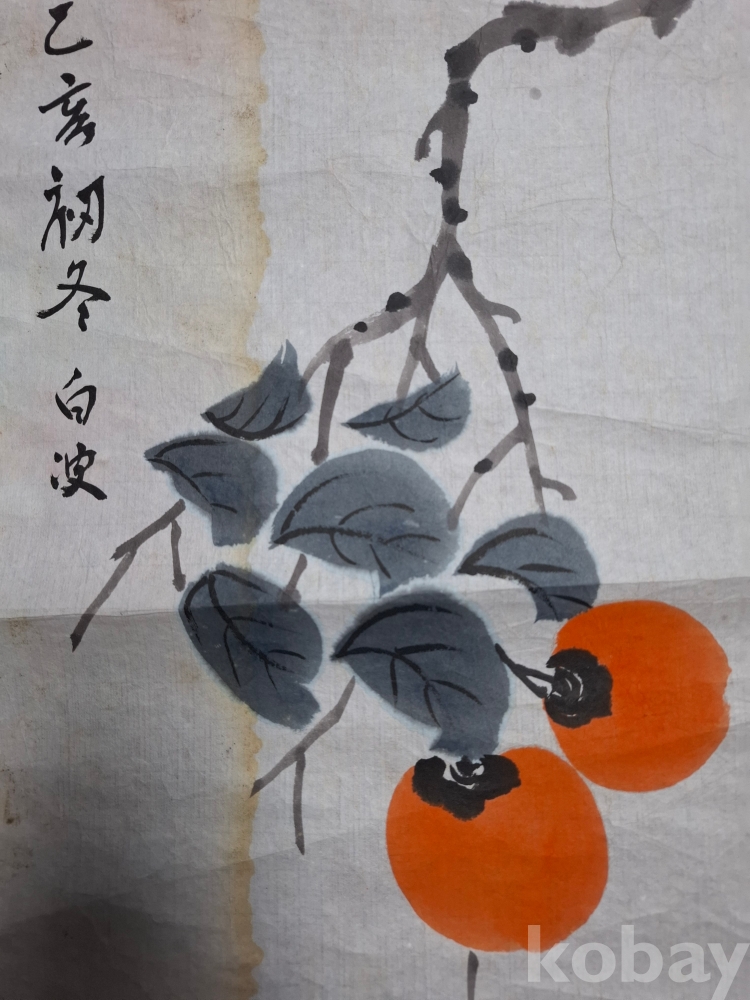 乙亥初冬 白波
kobay